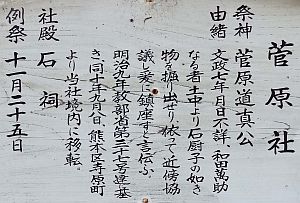 菅原社
祭神 菅原道真公
由緒 文政七年月日不詳、和田萬助
なる者土中より石厨子の如き
物を掘り出せり。依って近傍協
議し茲に鎮座すと言伝ふ。
明治九年教部省第三十七号達基
き、同十年九月八日、熊本区寺原町
より当社境内に移転。
社殿 石祠
例祭 十一月二十五日